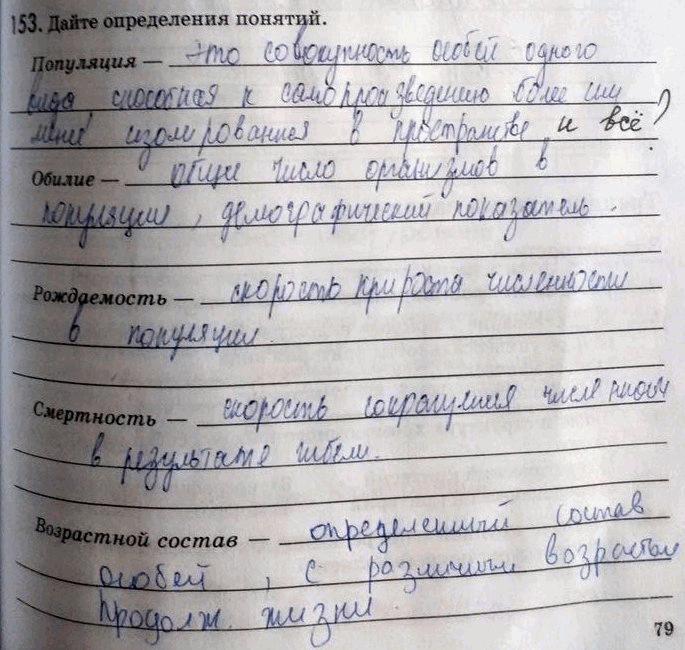 153. Дайте определения понятий.
Популяция — это совокупность особей одного
вида, способная к самопроизведению более или
менее изолированная в пространстве и всё?
Обилие — общее число организмов в
популяции, демографический показатель.
Рождаемость — скорость прироста численности
в популяции.
Смертность — скорость сокращения численности
в результате гибели.
Возрастной состав — определенный состав
особей, с различным возрастом
продолж. жизни.
79